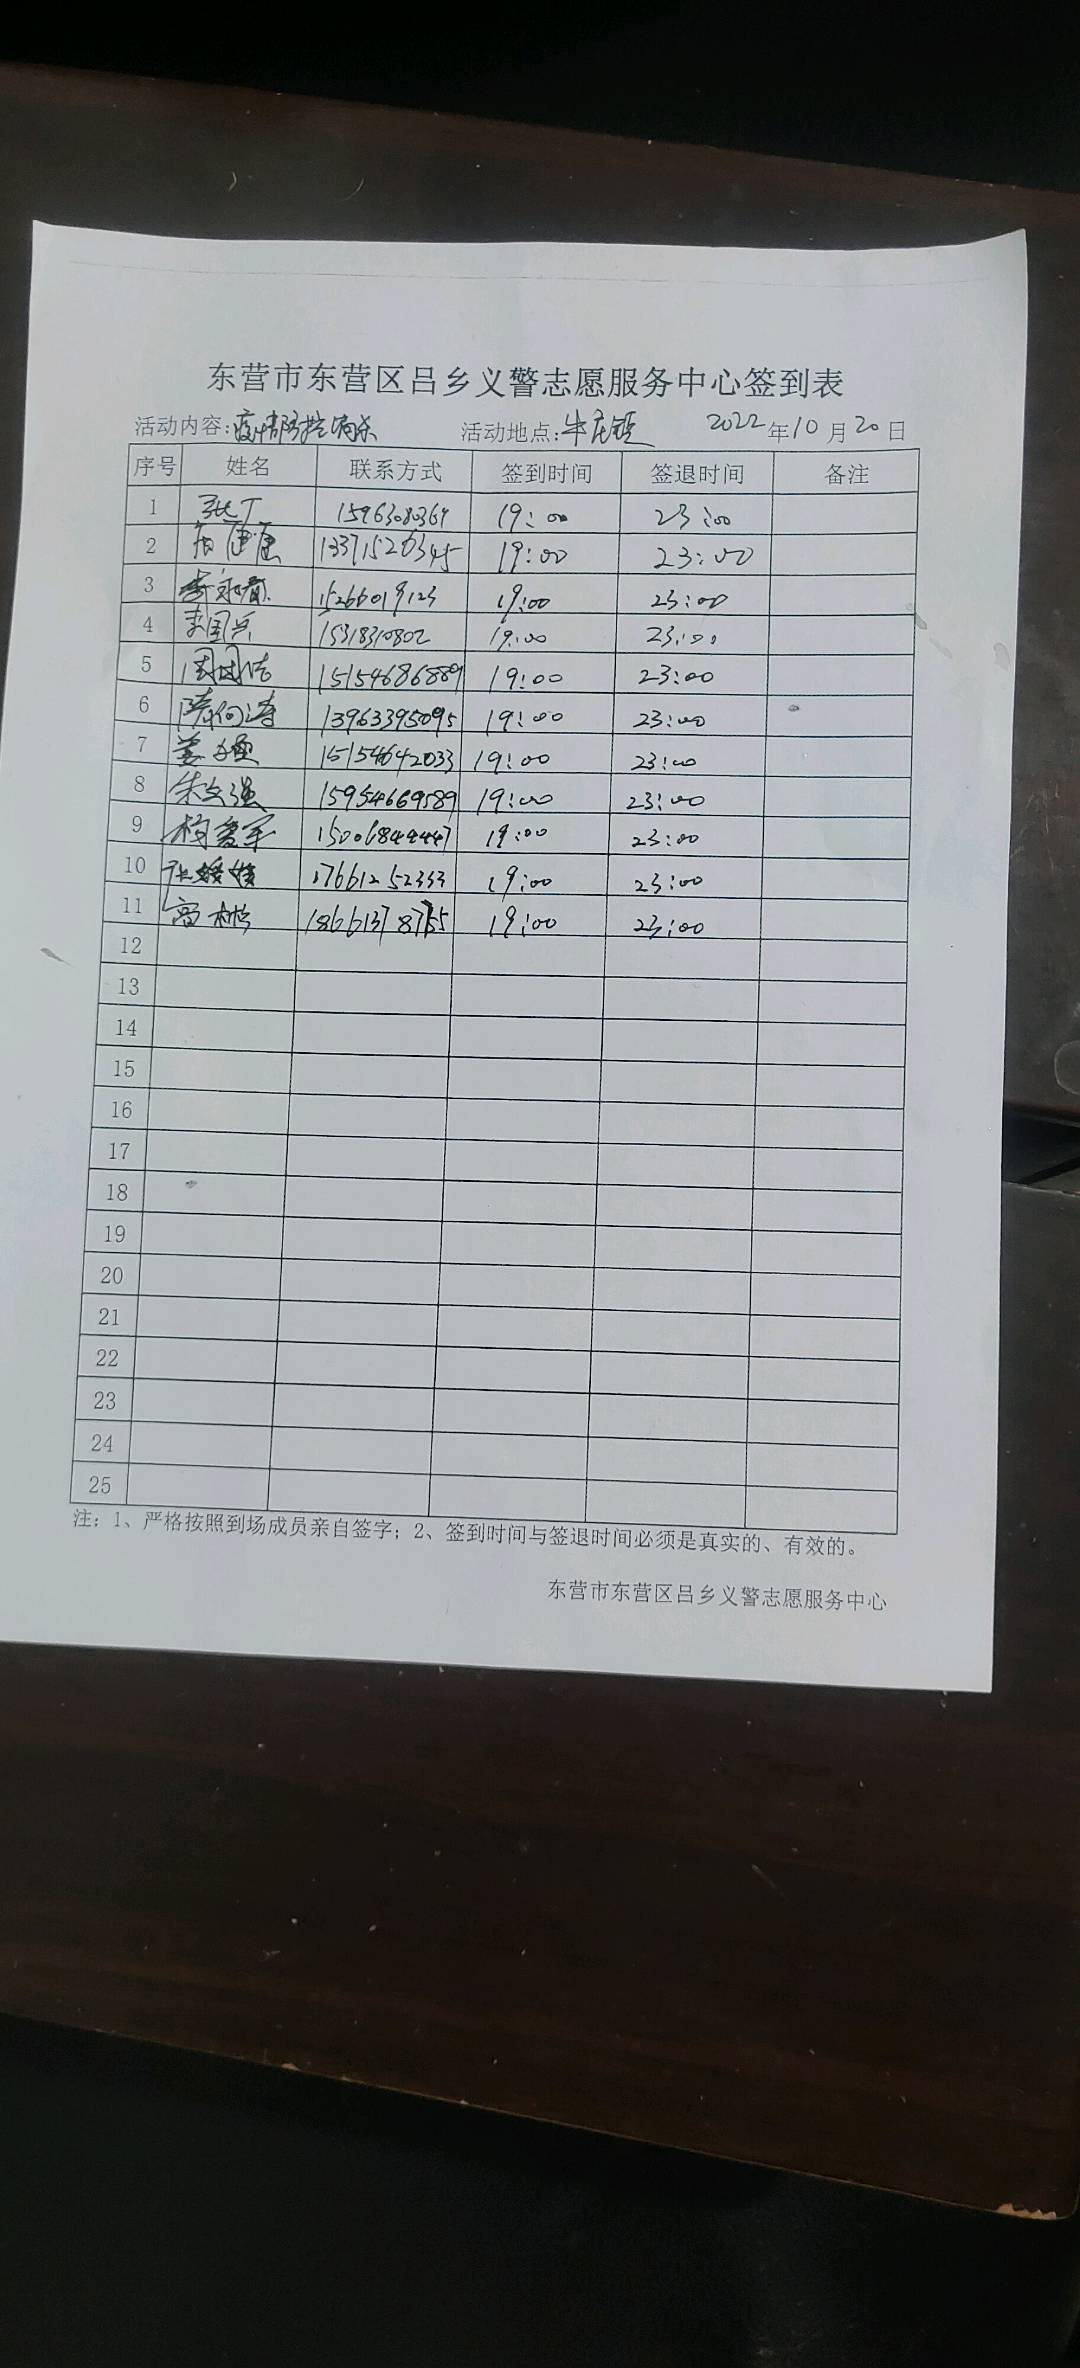 东营市东营区吕乡义警志愿服务中心签到表
活动内容:疫情防控消杀 活动地点:牛庄镇 2022年10月20日
序号 姓名 联系方式 签到时间 签退时间 备注
1 张丁 19:00 23:00
2 13371526345 19:00 23:00
3 李永 15266019123 19:00 23:00
4 李国兵 15318310802 19:00 23:00
5 周国洁 15154686889 19:00 23:00
6 隋向涛 13963395095 19:00 23:00
7 姜 15154642033 19:00 23:00
8 朱文强 15954669589 19:00 23:00
9 杨爱军 15006844447 19:00 23:00
10 张媛媛 17661252333 19:00 23:00
11 高彬 19:00 23:00
12
13
14
15
16
17
18
19
20
21
22
23
24
25
注：1、严格按照到场成员亲自签字；2、签到时间与签退时间必须是真实的、有效的。
东营市东营区吕乡义警志愿服务中心